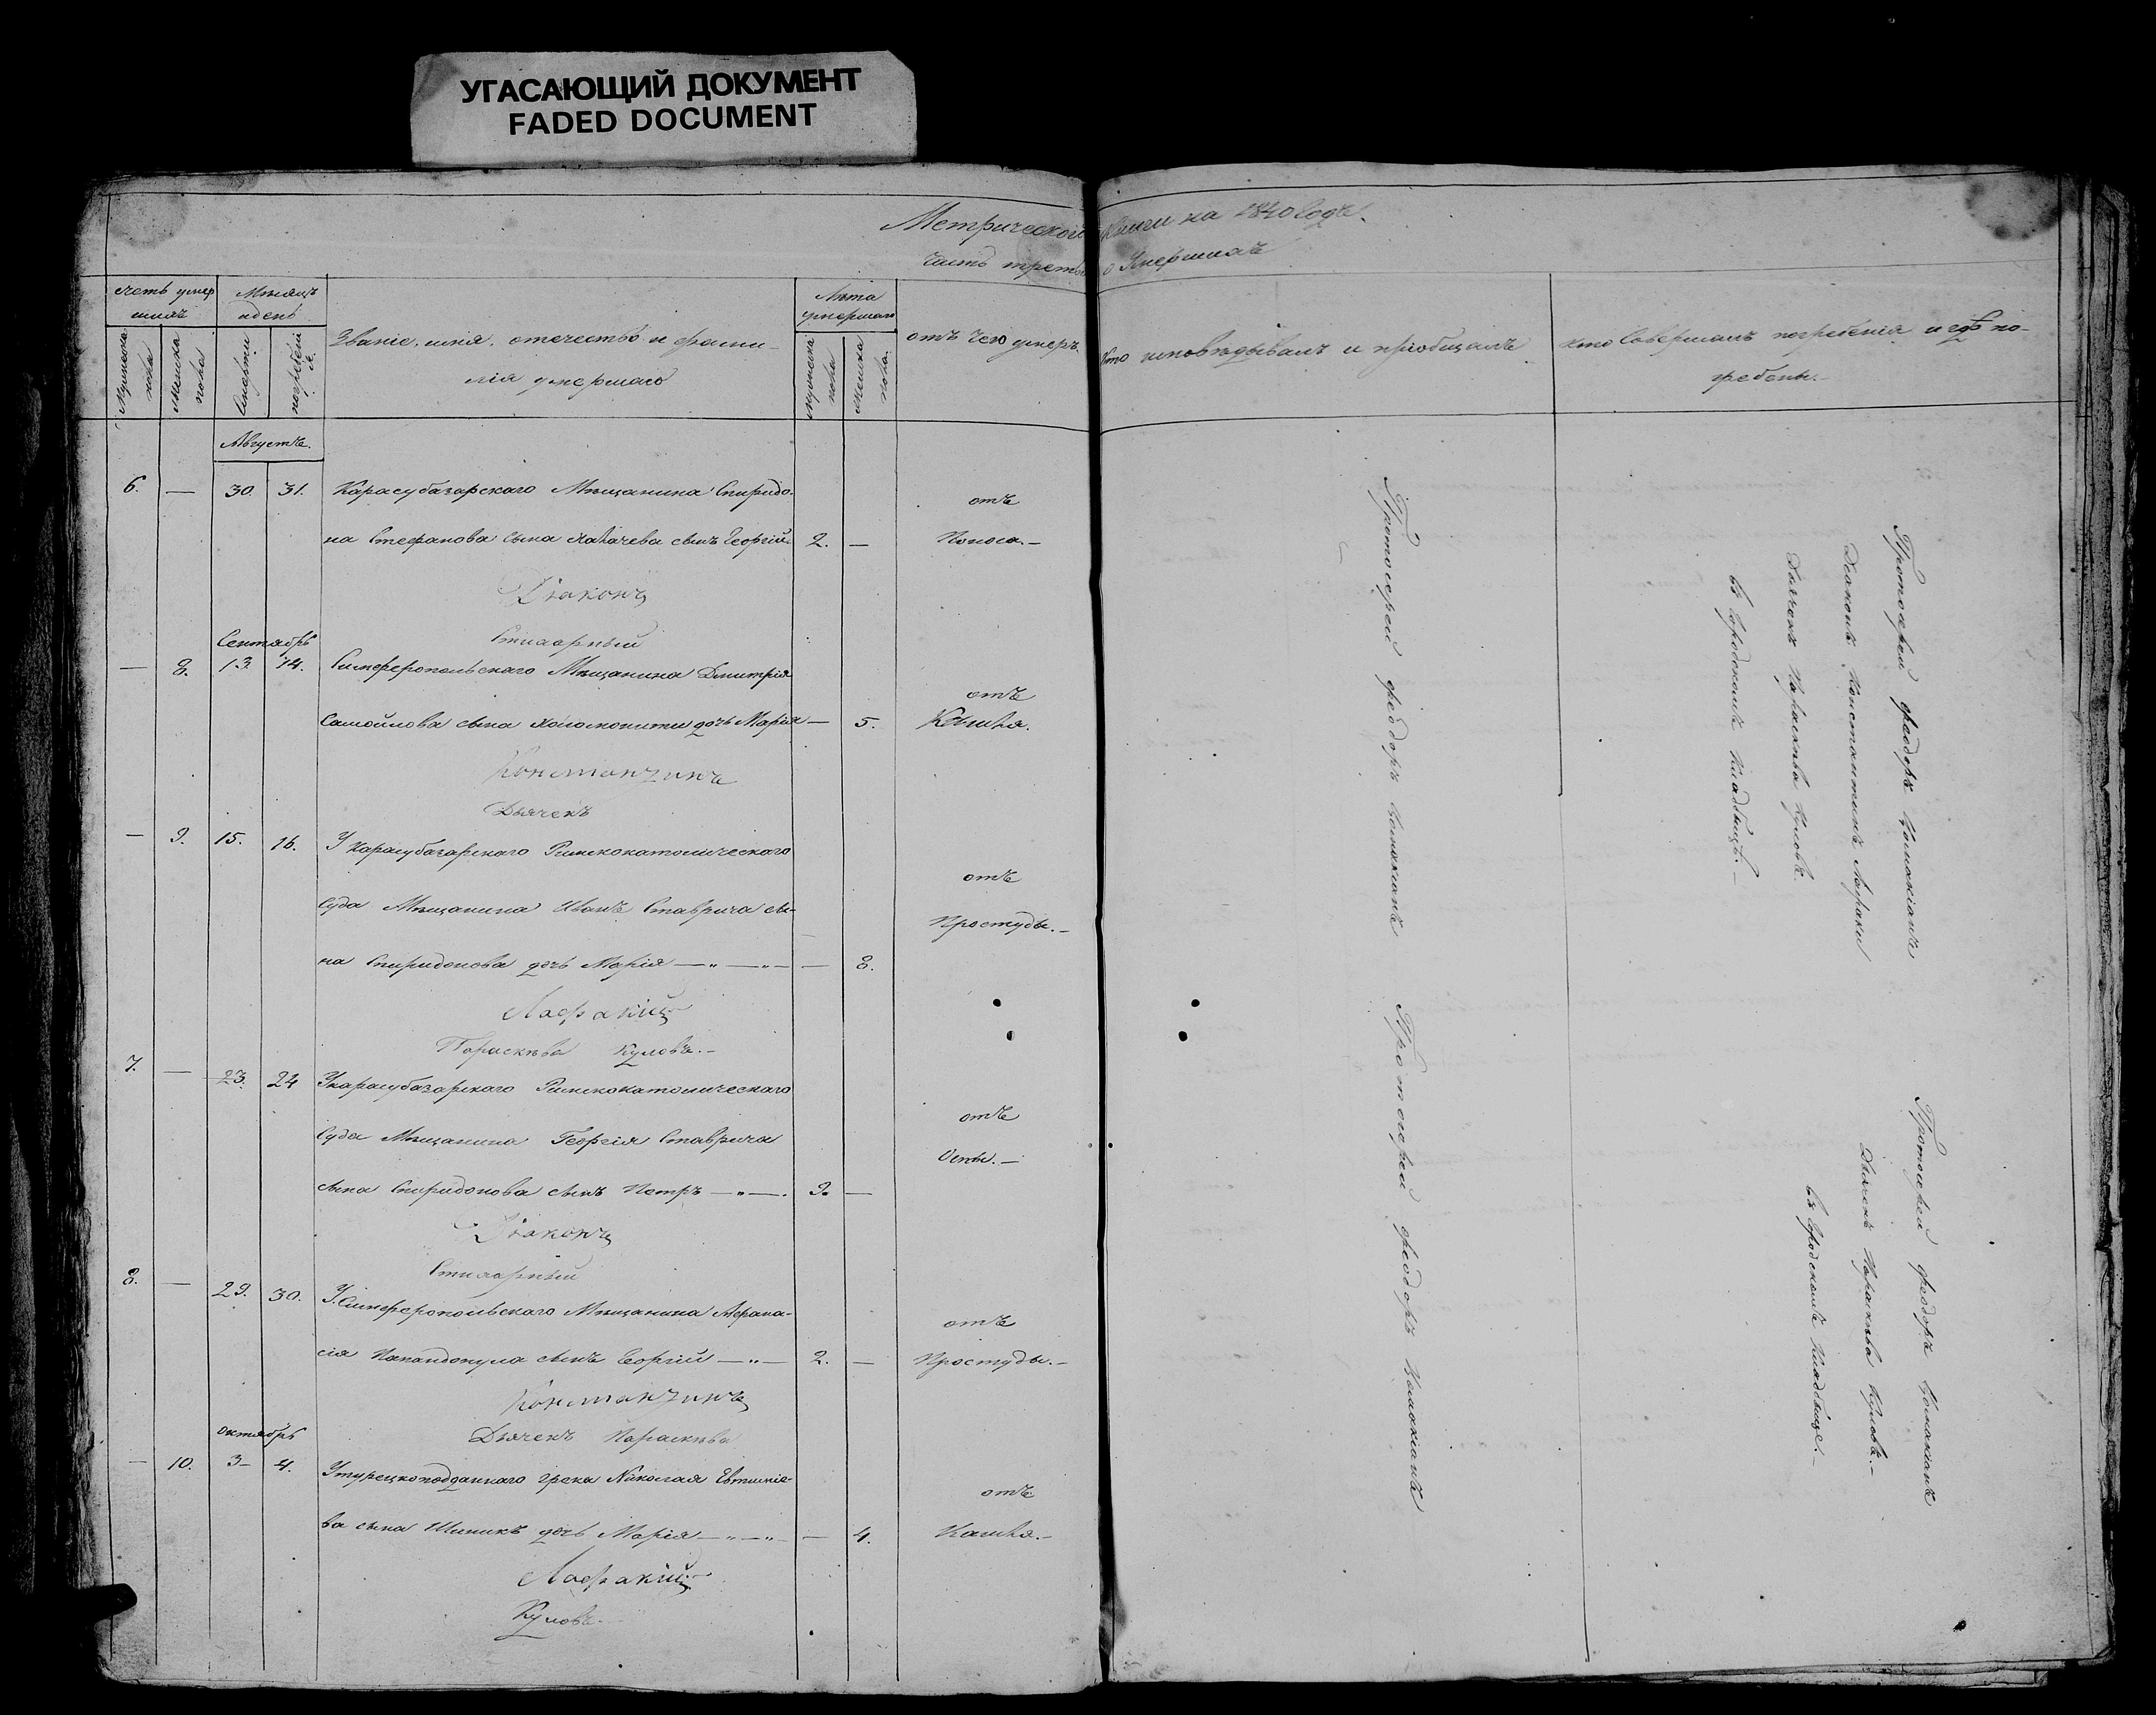 УГАСАЮЩИЙ ДОКУМЕНТ
FADED DOCUMENT
Метрической книги на 1840 годъ.
Часть третья о Умершихъ
Счетъ умершихъ
Мѣсяцъ и день
Званіе, имя, отечество и фамилія умершаго
Лѣта умершаго
отъ чего умеръ
Кто исповѣдывалъ и пріобщалъ
кто Совершалъ погребеніе и гдѣ погребены.
Мужеска пола
женска пола
Смерти
погребенія
мужеска пола
женска пола.
Августъ.
6. — 30. 31. Карасубазарскаго Мѣщанина Спиридо-
на Стефанова сына сынъ Георгій 2. —
отъ
Поноса.—
Діаконъ
Сентябрь
Стихарный
— 8. 13. 14. Симферопольскаго Мѣщанина Дмитрія
Самойлова сына дочь Марія — 5.
отъ
Кашля.
Константинъ
Дьячекъ
— 9. 15. 16. У Карасубазарскаго Римскокатолическаго
Суда Мѣщанина Иванъ Ставрича сы-
на Спиридонова дочь Марія —„— „— — 8.
отъ
Простуды.—
Лафакій
Параскѣва Куловъ.—
7. — 23. 24 У карасубазарскаго Римскокатолическаго
Суда Мѣщанина Георгія Ставрича
сына Спиридонова сынъ Петръ —„—. 9. —
отъ
Оспы.—
Діаконъ
Стихарный
8. — 29. 30. У Симферопольскаго Мѣщанина Афана-
сія Папандопула сынъ Георгій —„— 2. —
отъ
Простуды.—
Константинъ
Октябрь
Дьячекъ Параскѣва
— 10. 3— 4. У турецкоподданнаго грека Николая Евтиміе-
ва сына дочь Марія —„—„— — 4.
отъ
Кашля.—
Лафакій
Куловъ.—
Протоіерей Феодоръ
Протоіерей Феодоръ
Протоіерей Феодоръ
Діаконъ Константинъ
Дьячекъ Параскѣва Куловъ.
въ Городскомъ Кладбищѣ.—
Протоіерей Феодоръ
Дьячекъ Параскѣва Куловъ.—
въ Городскомъ Кладбище.—